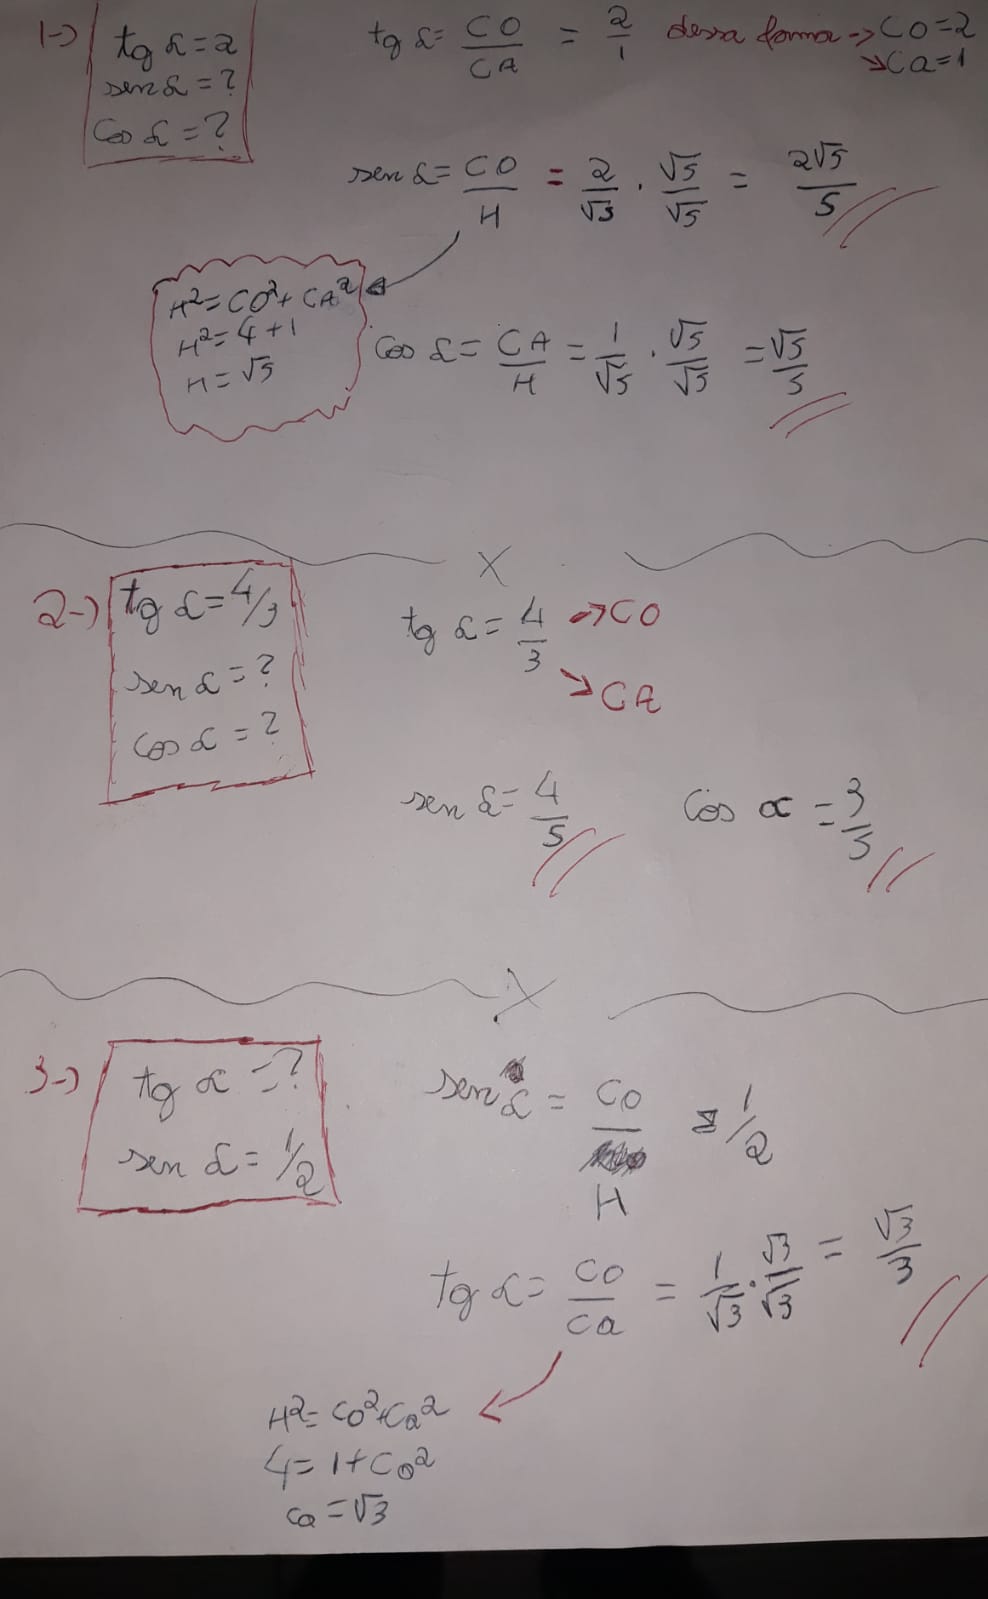 1-) tg α = 2
sen α = ?
Cos α = ?
tg α = CO/CA = 2/1 dessa forma → CO = 2
↘ Ca = 1
sen α = CO/H = 2/√5 . √5/√5 = 2√5/5
H² = CO² + CA²
H² = 4 + 1
H = √5
Cos α = CA/H = 1/√5 . √5/√5 = √5/5
X
2-) tg α = 4/3
sen α = ?
cos α = ?
tg α = 4/3 → CO
↘ CA
sen α = 4/5 Cos α = 3/5
X
3-) tg α = ?
sen α = 1/2
sen α = CO/H = 1/2
tg α = CO/Ca = 1/√3 . √3/√3 = √3/3
H² = CO² + Ca²
4 = 1 + Ca²
Ca = √3